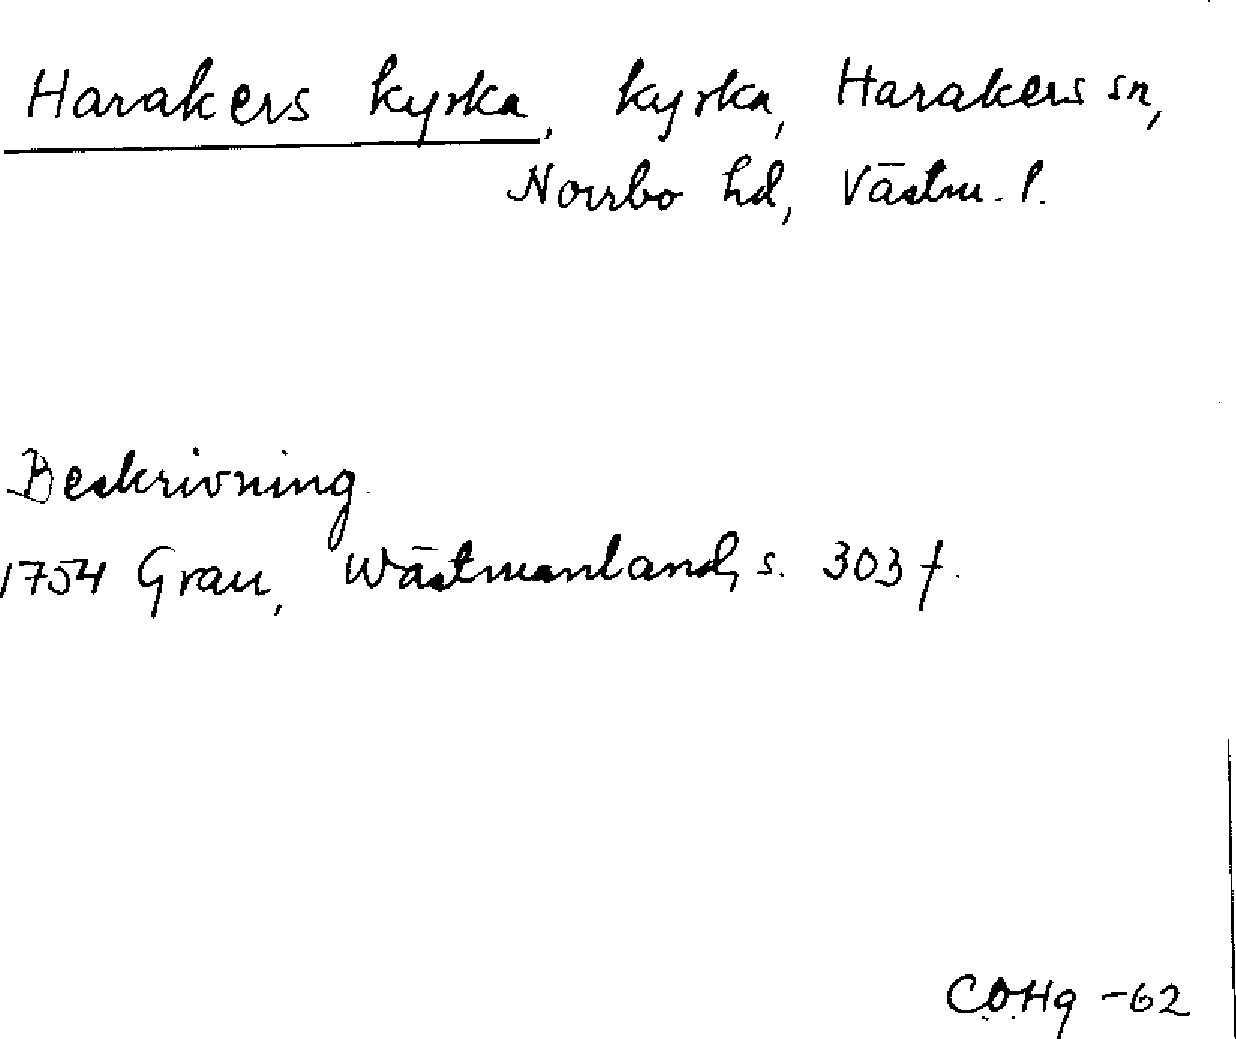 Harakers kyrka, kyrka, Harakers sn,
Norrbo hd, Västm. l.
Beskrivning
1754 Grau, Wästmanland, s. 303 f.
COHg -62